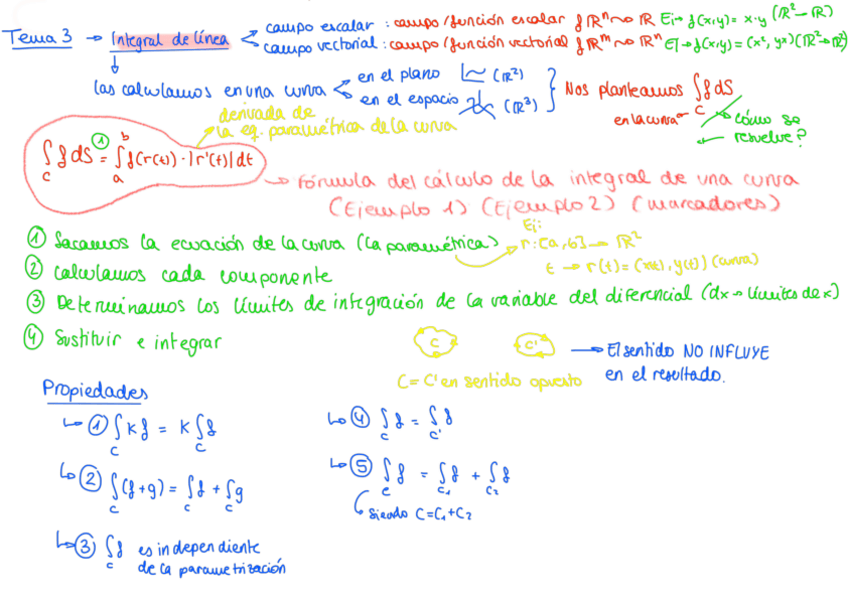 Tema 3 → Integral de línea
campo escalar : campo / función escalar f ℝⁿ → ℝ Ej → f(x,y) = x·y (ℝ² → ℝ)
campo vectorial : campo / función vectorial f ℝᵐ → ℝⁿ Ej → f(x,y) = (x², yx) (ℝ² → ℝ²)
Las calculamos en una curva
en el plano (ℝ²)
en el espacio (ℝ³)
Nos planteamos ∫_C f dS
en la curva
cómo se
resuelve?
derivada de
la eq. paramétrica de la curva
∫_C f dS ① = ∫_a^b f(r(t)) · |r'(t)| dt
→ Fórmula del cálculo de la integral de una curva
(Ejemplo 1) (Ejemplo 2) (marcadores)
① Sacamos la ecuación de la curva (la paramétrica)
Ej:
r : [a, b] → ℝ²
t → r(t) = (x(t), y(t)) (curva)
② Calculamos cada componente
③ Determinamos los límites de integración de la variable del diferencial (dx → límites de x)
④ Sustituir e integrar
C C' → El sentido NO INFLUYE
en el resultado.
C = C' en sentido opuesto
Propiedades
① ∫_C K f = K ∫_C f
② ∫_C (f + g) = ∫_C f + ∫_C g
③ ∫_C f es independiente
de la parametrización
④ ∫_C f = ∫_C' f
⑤ ∫_C f = ∫_C₁ f + ∫_C₂ f
siendo C = C₁ + C₂